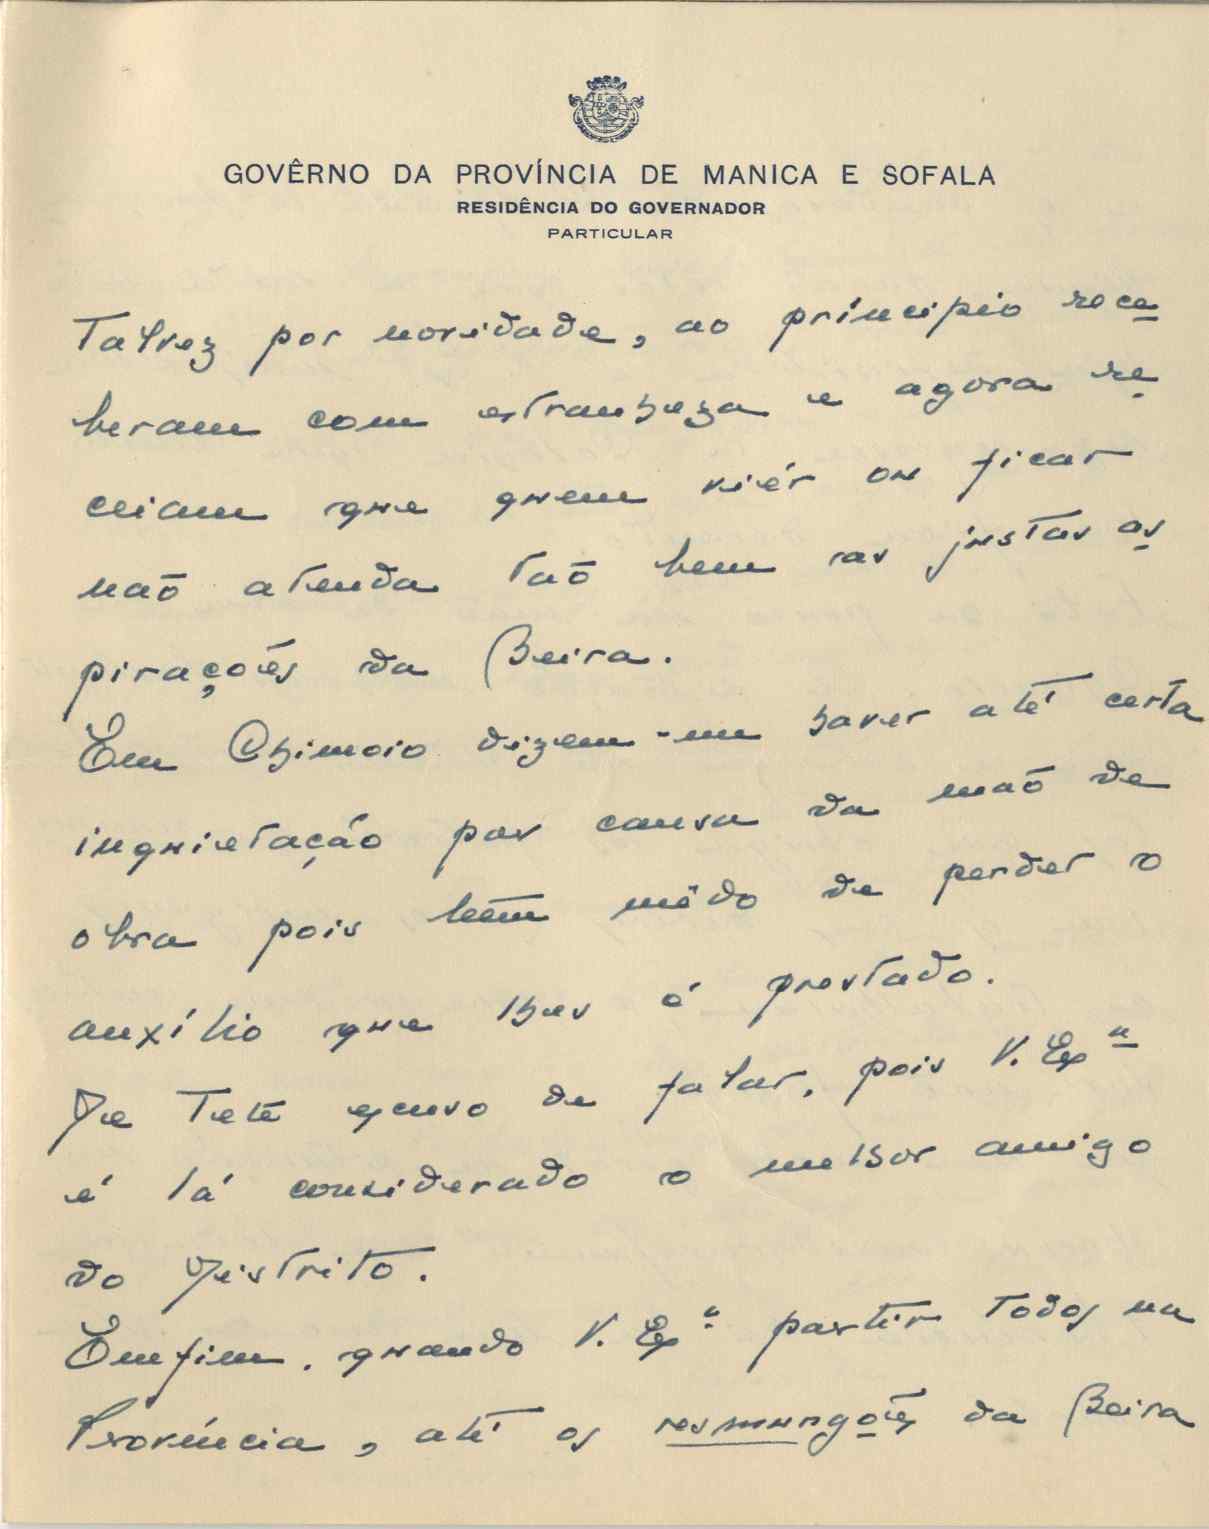 GOVÊRNO DA PROVÍNCIA DE MANICA E SOFALA
RESIDÊNCIA DO GOVERNADOR
PARTICULAR
Talvez por novidade, ao principio rece
beram com estranheza e agora re
ceiam que quem viér ou ficar
não atenda tão bem as justas as
pirações da Beira.
Em Chimoio dizem-me haver até certa
inquietação por causa da mão de
obra pois teem mêdo de perder o
auxílio que lhes é prestado.
De Tete escuso de falar, pois V. Exª
é lá considerado o melhor amigo
do Distrito.
Emfim, quando V. Exª partir todos na
Província, até os resmungões da Beira